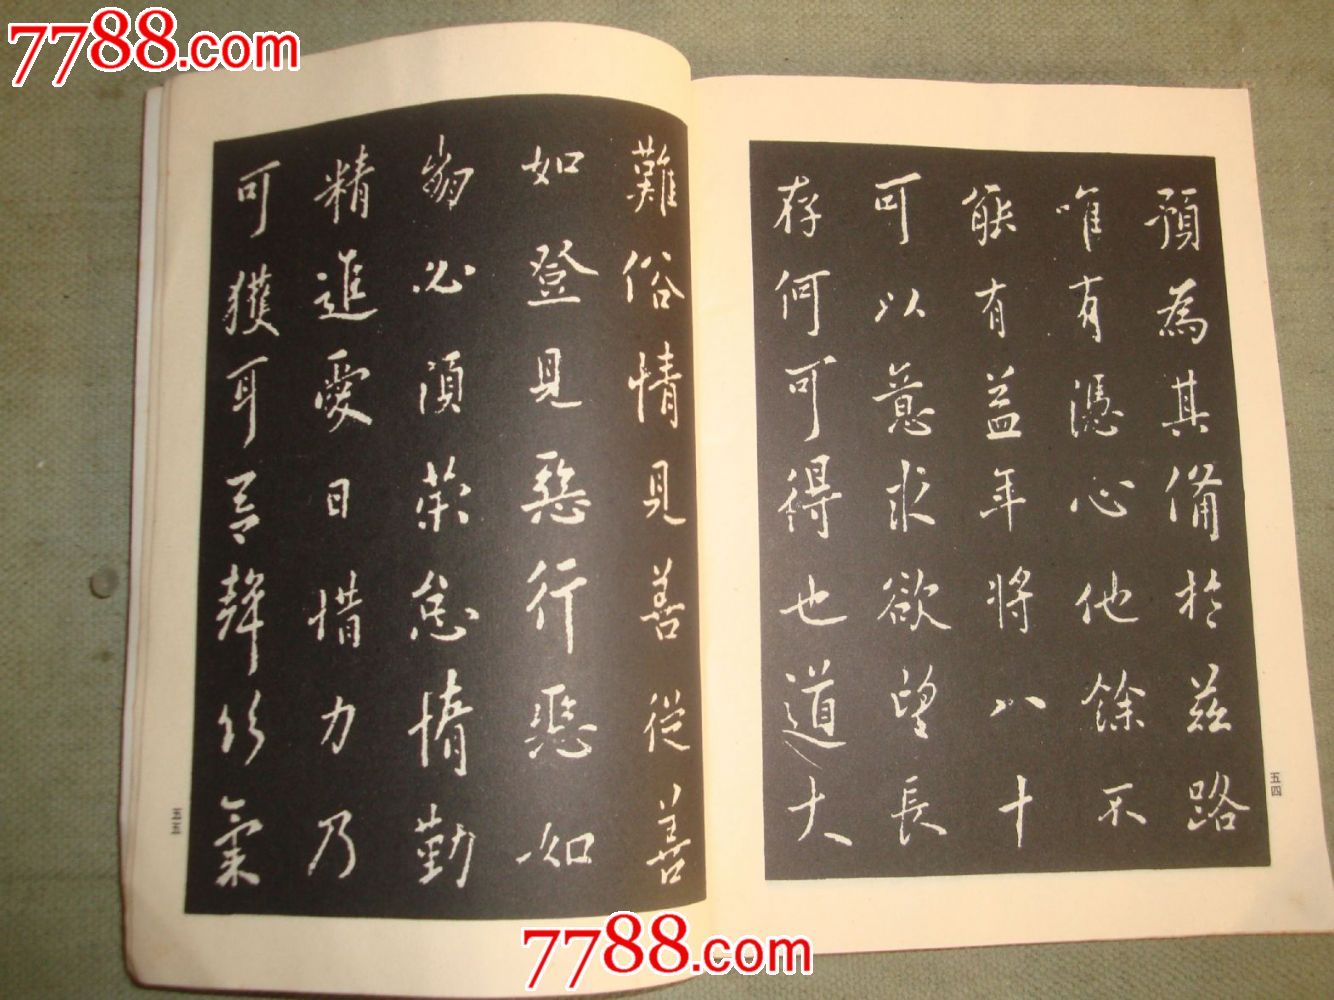 預為其備於茲路
唯有憑心他餘不
能有益年將八十
可以意求欲望長
存何可得也道大
五四
難俗情見善從善
如登見惡行惡如
崩必須策怠惰勤
精進愛日惜力乃
可獲耳聲氣
五五
7788.com
7788.com
7788.com